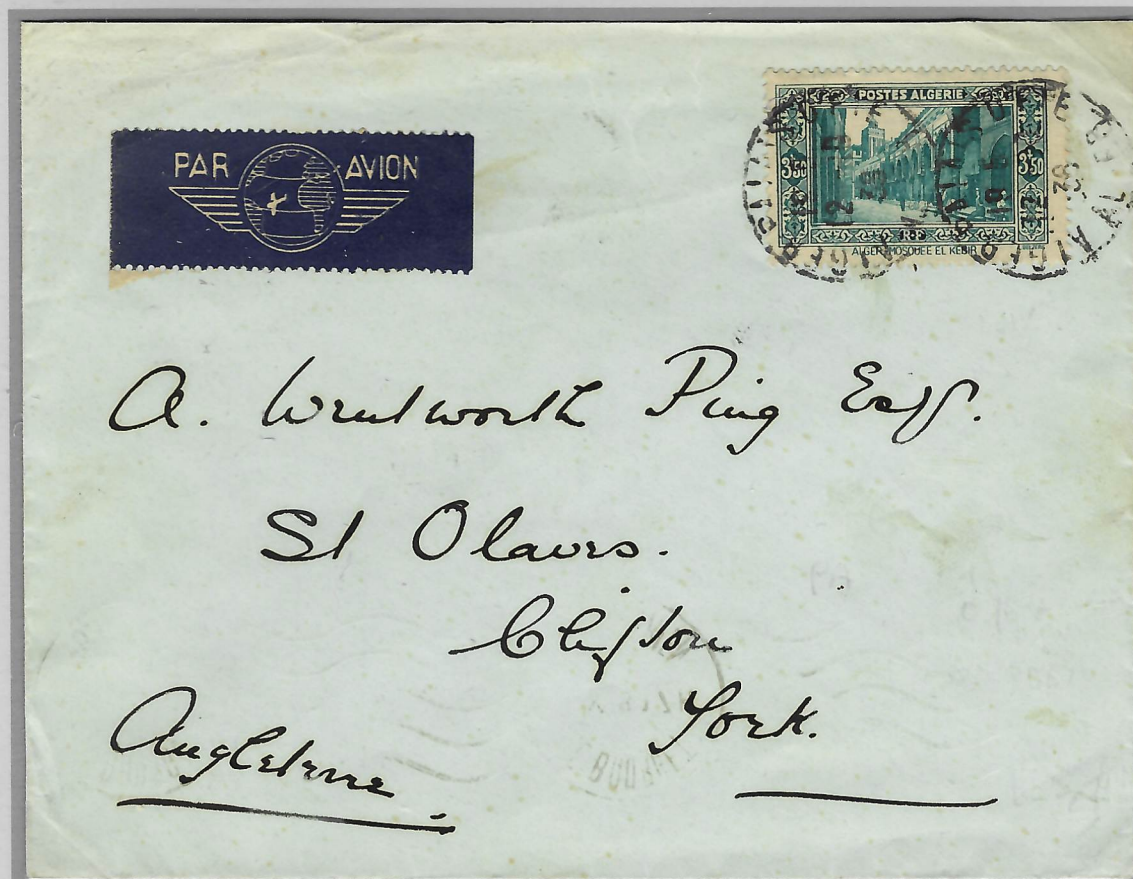 PAR AVION
POSTES ALGERIE
3F50 3F50
ALGER-MOSQUÉE EL KEBIR
A. Wentworth Ping Esqr.
St Olaves.
Clifton
York.
Angleterre